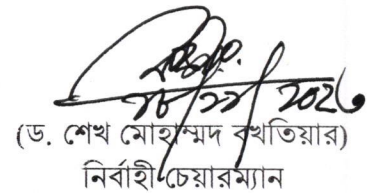 ২৮/১১/২০২৩
(ড. শেখ মোহাম্মদ বখতিয়ার)
নির্বাহী চেয়ারম্যান